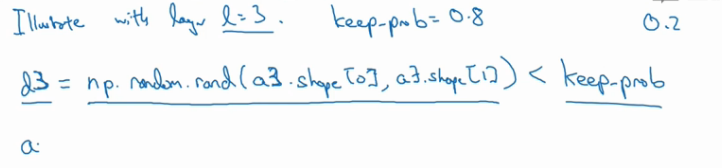 Illustrate with layer l=3. keep-prob= 0.8 0.2
d3 = np.random.rand(a3.shape[0], a3.shape[1]) < keep-prob
a